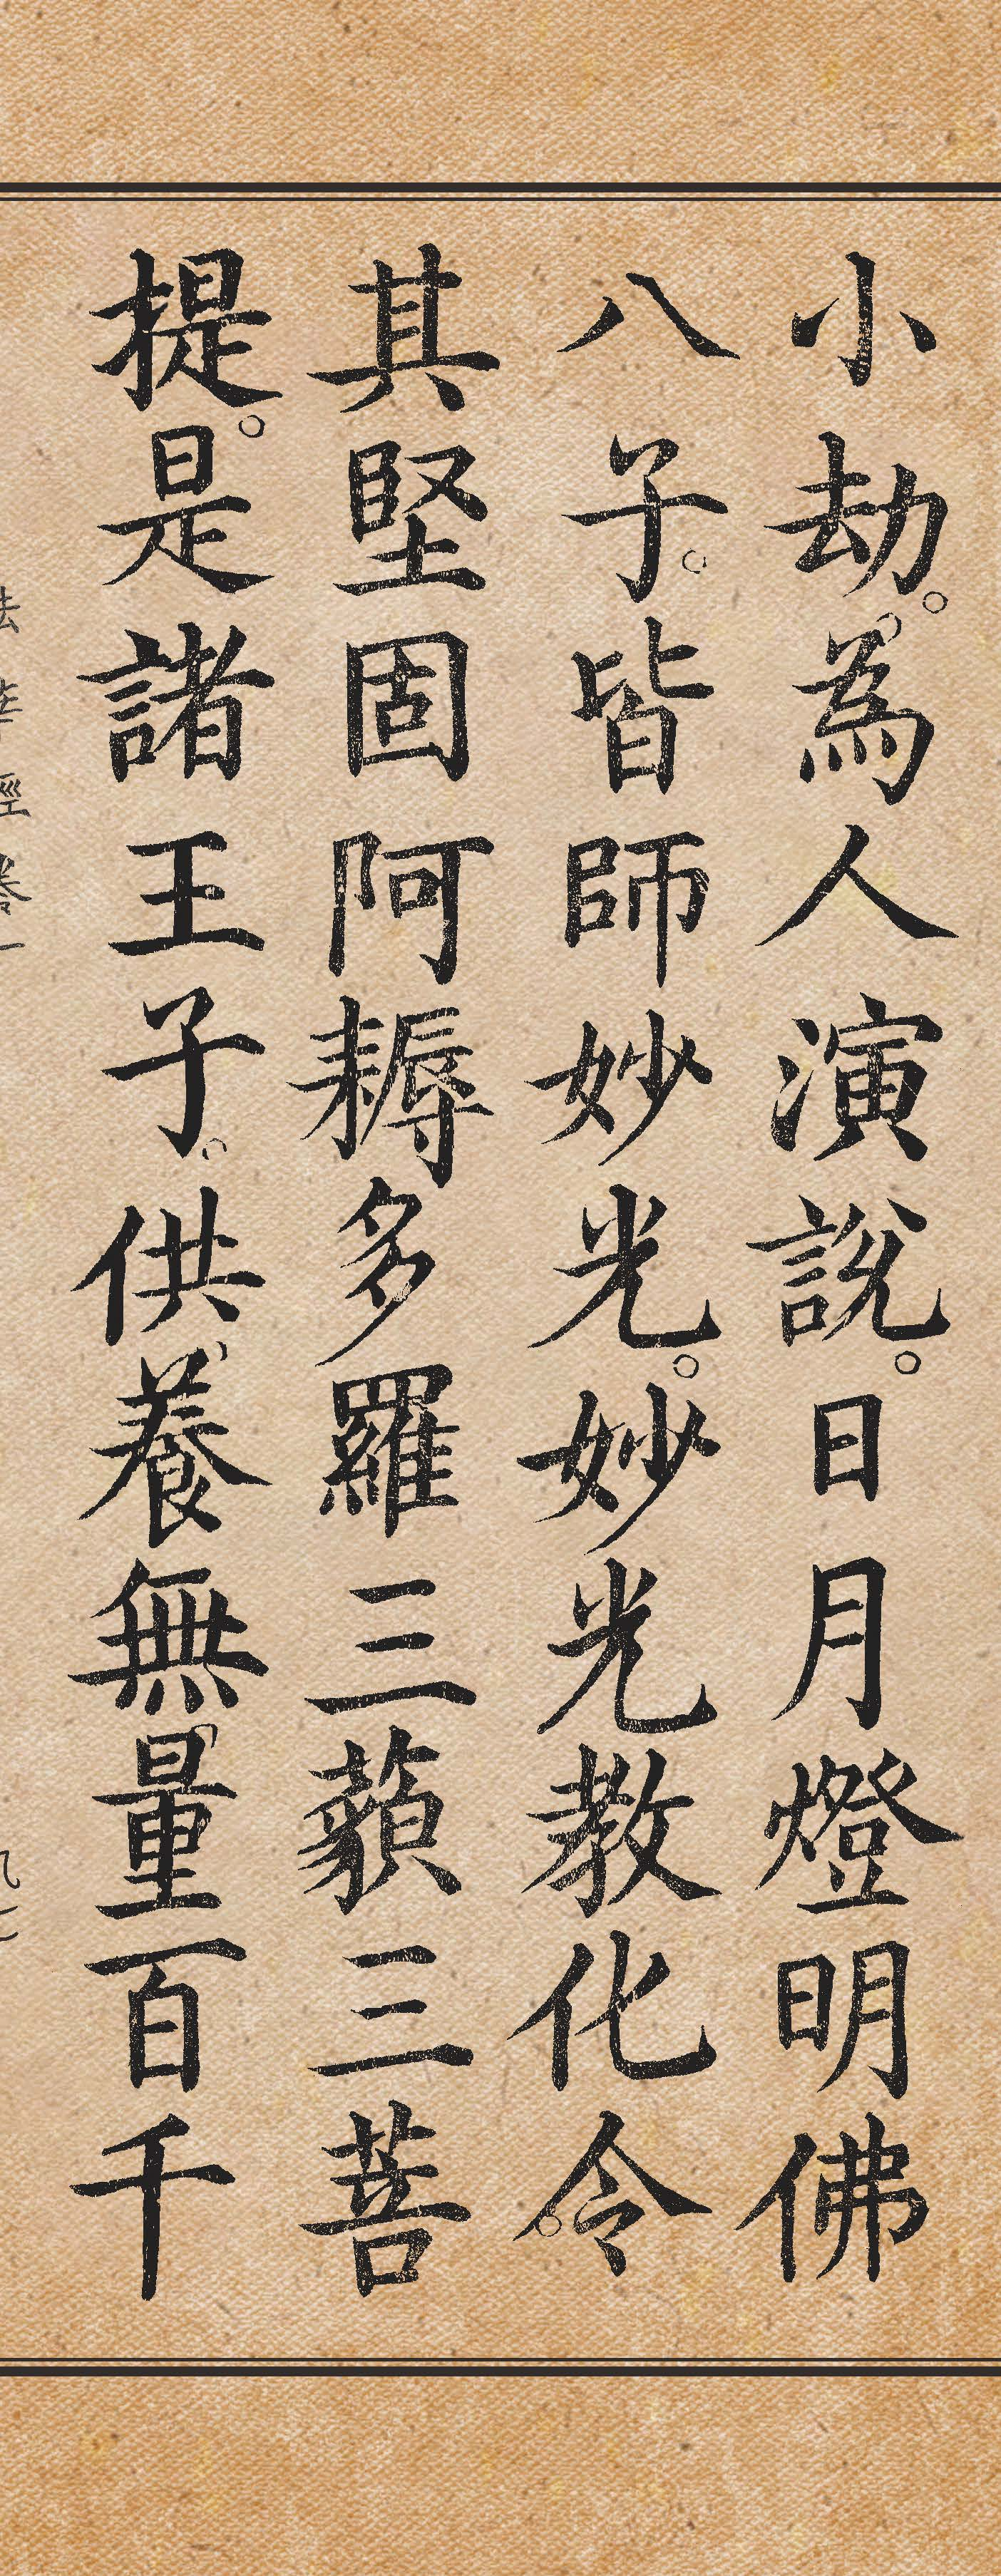 小劫。為人演說。日月燈明佛
八子。皆師妙光。妙光教化令
其堅固阿耨多羅三藐三菩
提。是諸王子。供養無量百千
法華經卷一